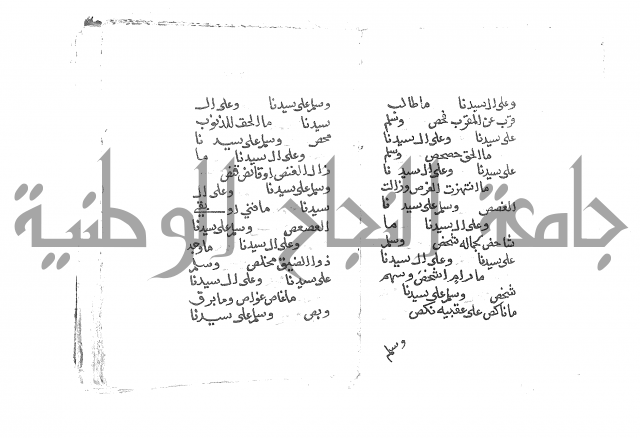 وعلى ال سيدنا ما طالب
قرب عن المقرب فحص وسلم
على سيدنا وعلى ال سيدنا
ما الحق حصحص وسلم
على سيدنا وعلى ال سيدنا
ما انتهزت الفرص وزالت
الغصص وسلم على سيدنا
وعلى ال سيدنا ما
شخص وسلم
على سيدنا وعلى ال سيدنا
ما درام وسهم
شخص وسلم على سيدنا
ما ناكص على عقبيه نكص
وسلم
وسلم على سيدنا وعلى ال
سيدنا ما الحق للذنوب
محص وسلم على سيدنا
وعلى ال سيدنا ما
زال الغصص
وسلم على سيدنا وعلى ال
سيدنا ما فني او بقي
وسلم على سيدنا
وعلى ال سيدنا ما وجد
ذو الضيق مخلص وسلم
على سيدنا وعلى ال سيدنا
ما غاص غواص وما برق
وبص وسلم على سيدنا
جامعة النجاح الوطنية